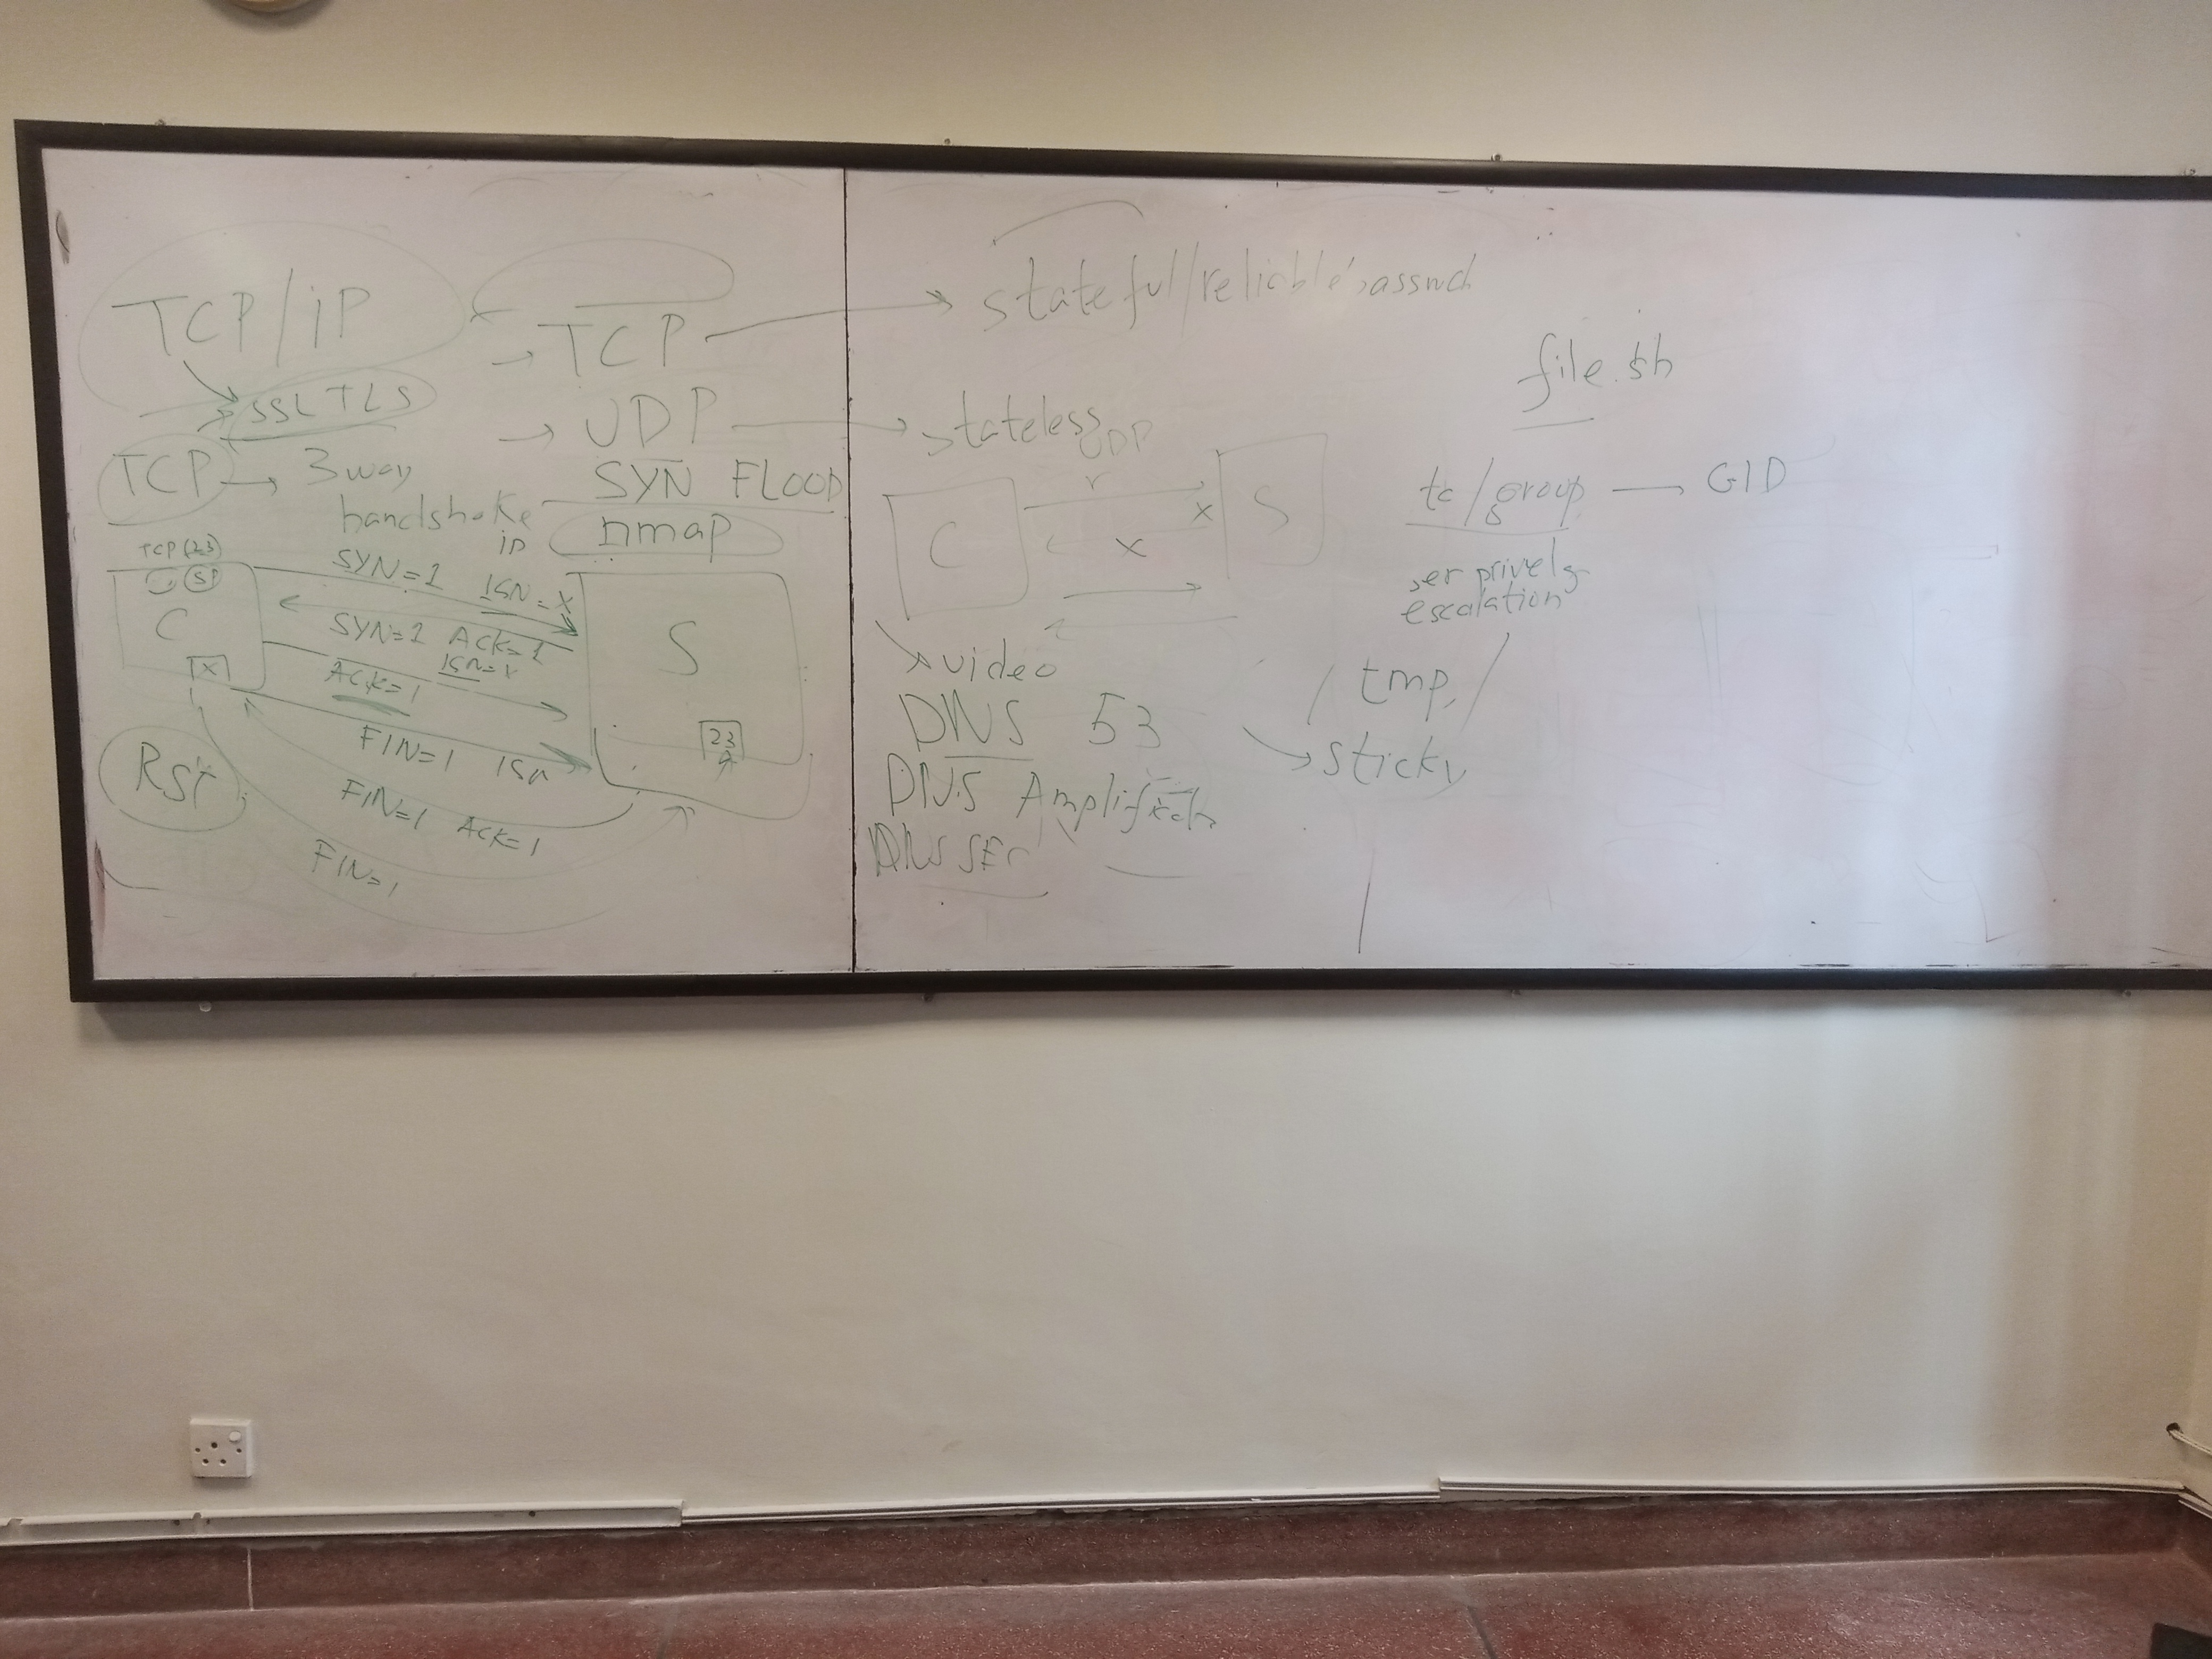 TCP/iP
SSL TLS
TCP → 3 way
handshake
in
→ TCP → stateful/reliable
→ UDP → stateless
UDP
SYN FLOOD
nmap
TCP (23)
SP
C
X
SYN=1 ISN=X
SYN=1 Ack=1
ISN=Y
Ack=1
FIN=1 ISN
FIN=1 Ack=1
FIN=1
Rst
S
23
C
r
X
X
S
video
DNS 53
DNS Amplification
DNS SEC
file.sh
tc/group — GID
ser privelg
escalation
/tmp/
sticky